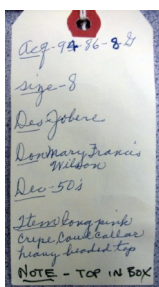 Acq-94-86-8-G
size-8
Des Jobere
Don Mary Francis
Wilson
Dec-50's
Item long pink
crepe, collar
heavy beaded top
NOTE - TOP IN BOX